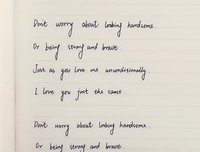 Don't worry about looking handsome.
Or being strong and brave.
Just as you love me unconditionally.
I love you just the same
Don't worry about looking handsome.
Or being strong and brave